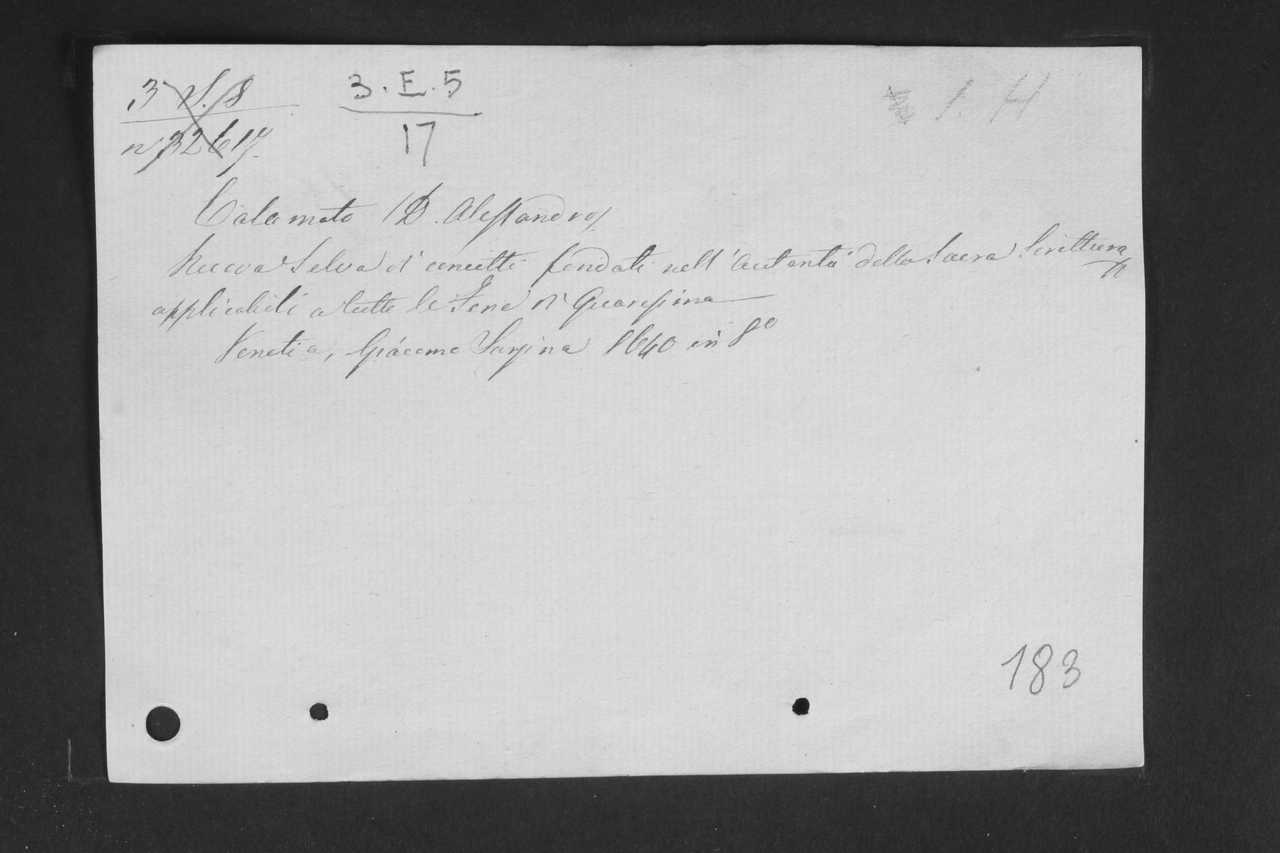 3. E. 5
17
1. H
Calamato (D. Alessandro)
Nuova Selva di concetti fondati nell'autorità della Sacra Scrittura
applicabili a tutte le Ferie di Quaresima
Venetia, Giacomo Sarzina 1640 in 8º
183